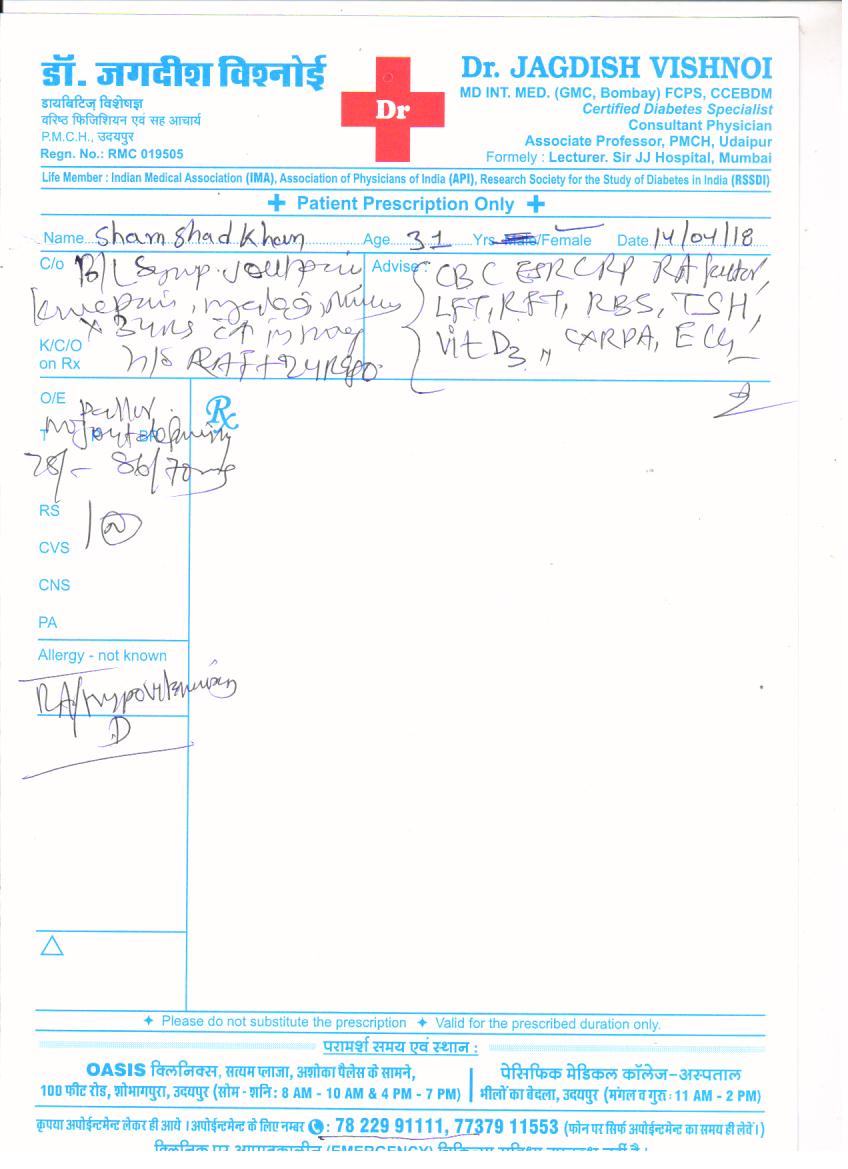 डॉ. जगदीश विश्नोई
डायबिटिज् विशेषज्ञ
वरिष्ठ फिजिशियन एवं सह आचार्य
P.M.C.H., उदयपुर
Regn. No.: RMC 019505
Dr
Dr. JAGDISH VISHNOI
MD INT. MED. (GMC, Bombay) FCPS, CCEBDM
Certified Diabetes Specialist
Consultant Physician
Associate Professor, PMCH, Udaipur
Formely : Lecturer. Sir JJ Hospital, Mumbai
Life Member : Indian Medical Association (IMA), Association of Physicians of India (API), Research Society for the Study of Diabetes in India (RSSDI)
Patient Prescription Only
Name Shamshad Khan Age 31 Yrs Male/Female Date 14/04/18
C/o B/L Symp. Joint pain
Knee pain
K/C/O
on Rx h/o RA
Advise: CBC ESR CRP RA factor,
LFT, RFT, RBS, TSH,
Vit D3, CXRPA, ECG
O/E Pallor
T P BP
78/- 86/70
Rx
RS
CVS
CNS
PA
Allergy - not known
RA/Hypovitaminosis
D
△
Please do not substitute the prescription Valid for the prescribed duration only.
परामर्श समय एवं स्थान :
OASIS क्लिनिक्स, सत्यम प्लाजा, अशोका पैलेस के सामने,
100 फीट रोड, शोभागपुरा, उदयपुर (सोम - शनि : 8 AM - 10 AM & 4 PM - 7 PM)
पेसिफिक मेडिकल कॉलेज-अस्पताल
भीलों का बेदला, उदयपुर (मंगल व गुरु : 11 AM - 2 PM)
कृपया अपोईन्टमेन्ट लेकर ही आये । अपोईन्टमेन्ट के लिए नम्बर : 78 229 91111, 77379 11553 (फोन पर सिर्फ अपोईन्टमेन्ट का समय ही लेवें।)